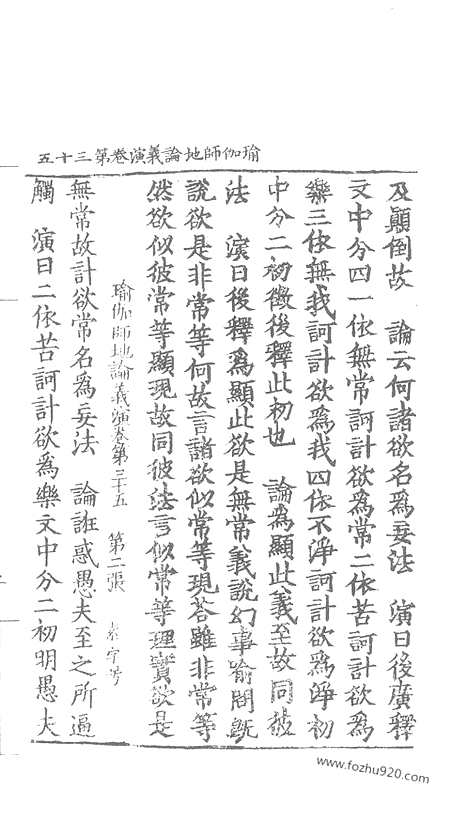 瑜伽師地論義演卷第三十五
及顛倒故　論云何諸欲名為妄法　演曰後廣釋
文中分四一依無常訶計欲為常二依苦訶計欲為
樂三依無我訶計欲為我四依不淨訶計欲為淨初
中分二初徵後釋此初也　論為顯此義至故同彼
法　演曰後釋為顯此欲是無常義說幻事喻問既
說欲是非常等何故言諸欲似常等現荅雖非常等
然欲似彼常等顯現故同彼法言似常等理實欲是
瑜伽師地論義演卷第三十五　第二張　素字号
無常故計欲常名為妄法　論誑惑愚夫至之所逼
觸　演曰二依苦訶計欲為樂文中分二初明愚夫
www.fozhu920.com